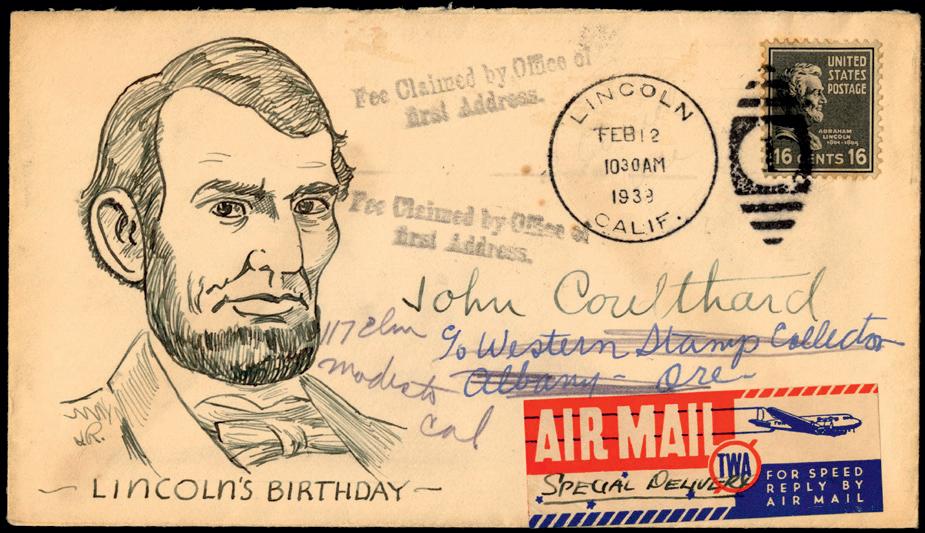 Fee Claimed by Office of
first Address.
LINCOLN
FEB 12
10 30 AM
1939
CALIF.
UNITED
STATES
POSTAGE
ABRAHAM
LINCOLN
1861-1865
16 CENTS 16
Fee Claimed by Office of
first Address.
John Coulthard
c/o Western Stamp Collector
Albany - Ore -
117 Elm
Modesto
Cal
AIR MAIL
TWA
SPECIAL DELIVERY
FOR SPEED
REPLY BY
AIR MAIL
~ LINCOLN'S BIRTHDAY ~